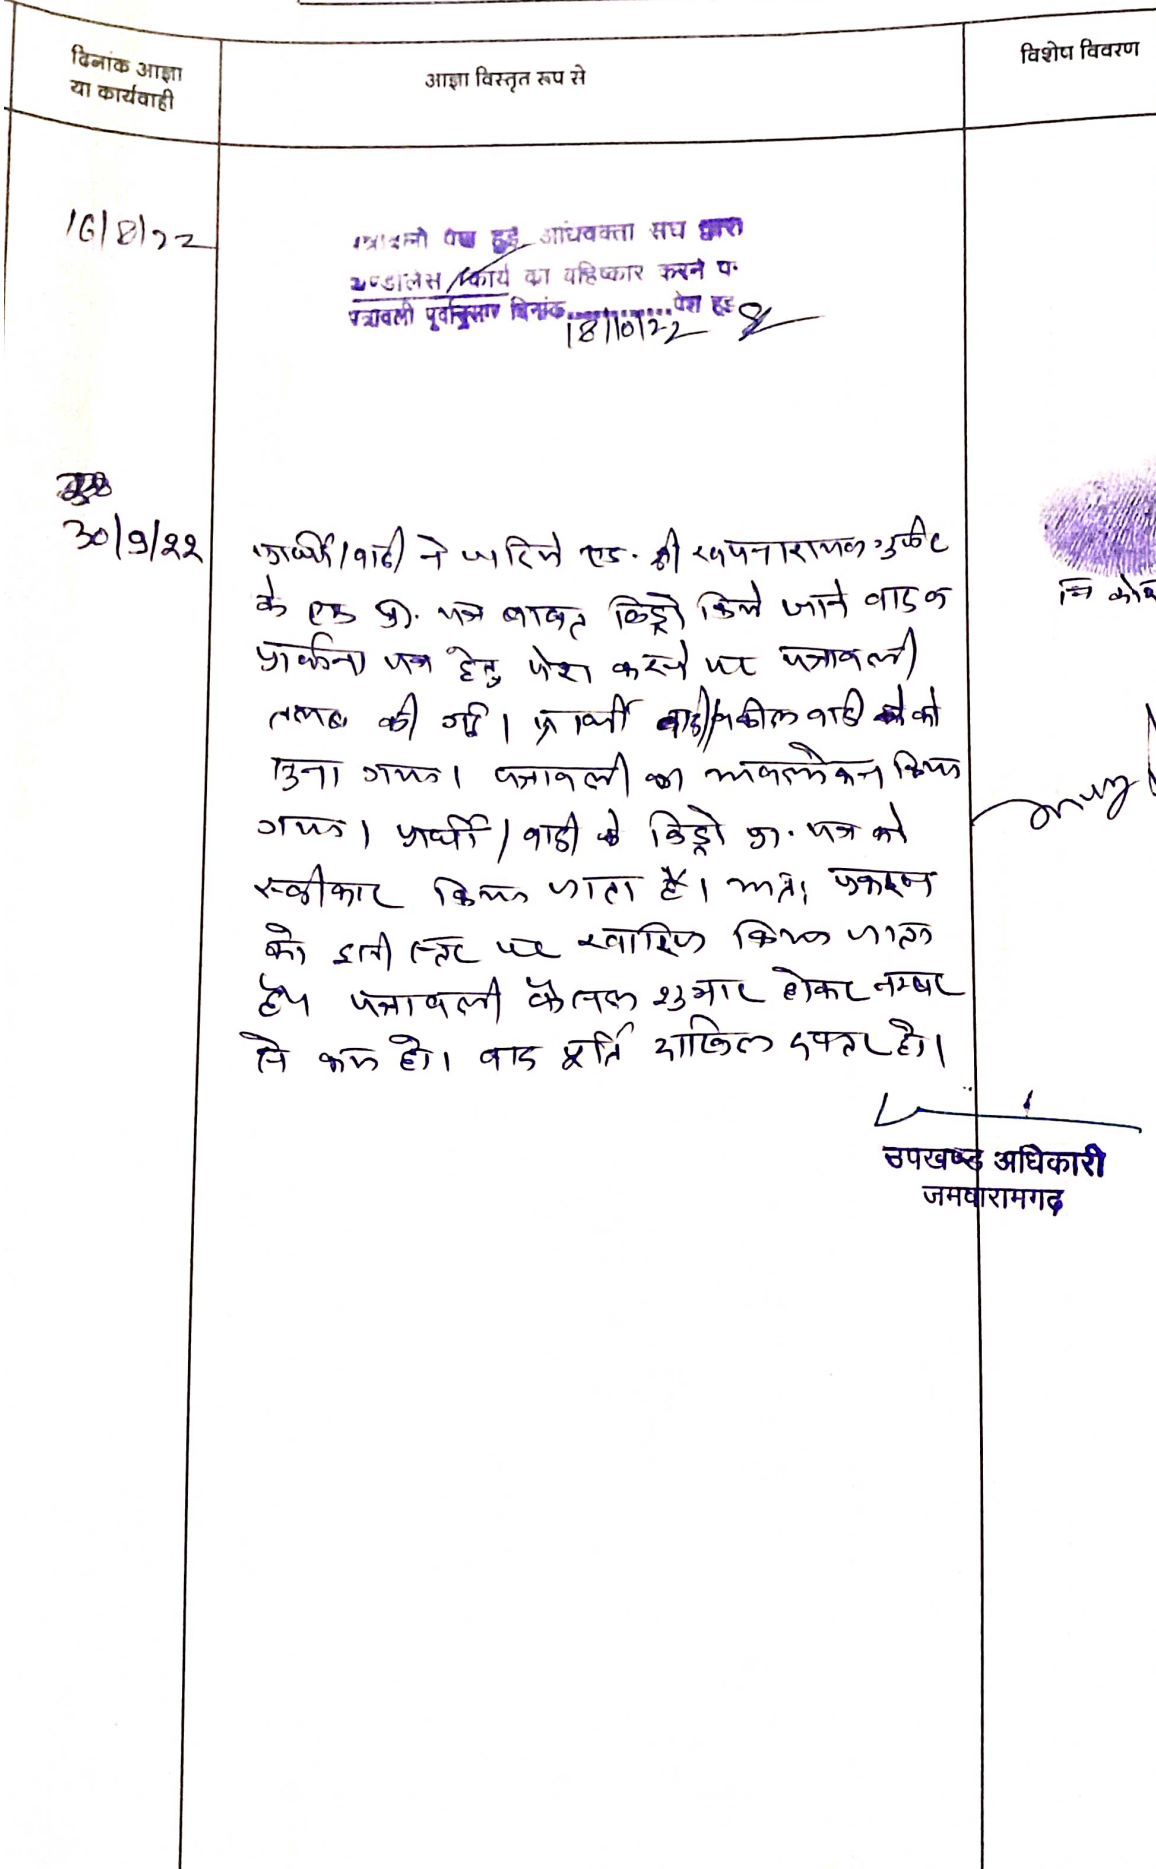 दिनांक आज्ञा
या कार्यवाही
आज्ञा विस्तृत रूप से
विशेष विवरण
16/8/22
पत्रावली पेश हुई अधिवक्ता संघ द्वारा
कार्य का बहिष्कार करने प.
पत्रावली पूर्वानुसार दिनांक............पेश हुई
18/10/22
30/9/22
प्रार्थी/वादी ने जरिये एड. श्री
के एक प्रा. पत्र बाबत विड्रो किये जाने वाद व
प्रार्थना पत्र हेतु पेश करने पर पत्रावली
तलब की गई। प्रार्थी वादी/वकील वादी को
सुना गया। पत्रावली का अवलोकन किया
गया। प्रार्थी/वादी के विड्रो प्रा. पत्र को
स्वीकार किया जाता है। अतः प्रकरण
को इसी स्तर पर खारिज किया जाता
है। पत्रावली फैसल शुमार होकर नम्बर
से कम हो। वाद पूर्ति दाखिल दफ्तर हो।
उपखण्ड अधिकारी
जमवारामगढ़